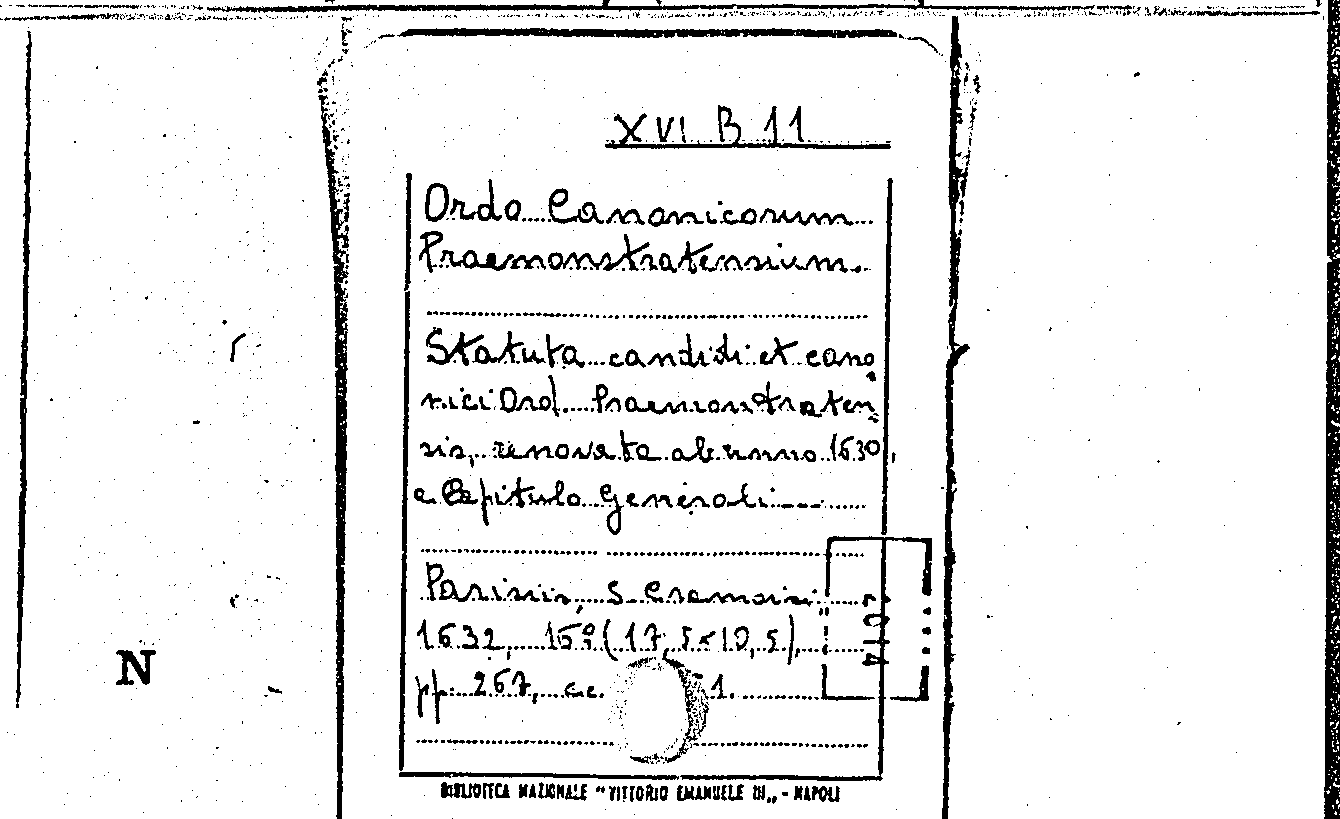 XVI B 11
Ordo Canonicorum
Praemonstratensium.
Statuta candidi et cano
nici Ord. Praemonstraten
sis, renovata ab anno 1630,
a Capitulo Generali
Parisiis, S. Cramoisi
1632, 16º (17,5 x 10,5),
pp. 267, cc. 1.
N
BIBLIOTECA NAZIONALE "VITTORIO EMANUELE III" - NAPOLI